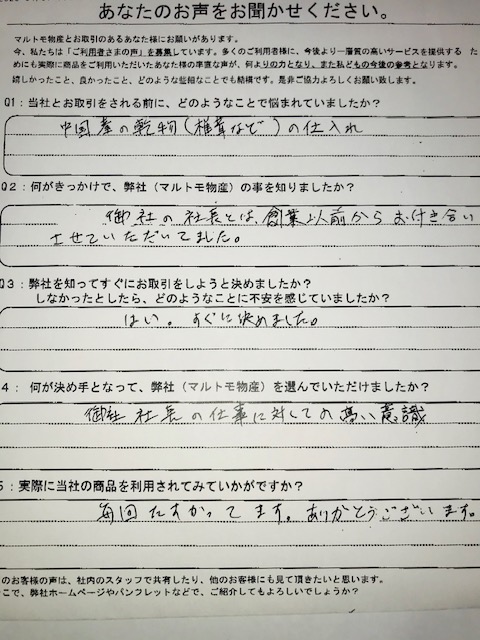 あなたのお声をお聞かせください。
マルトモ物産とお取引のあるあなた様にお願いがあります。
今、私たちは「ご利用者さまの声」を募集しています。多くのご利用者様に、今後より一層質の高いサービスを提供する た
めにも実際に商品をご利用いただいたあなた様の率直な声が、何よりの力となり、また私どもの今後の参考となります。
嬉しかったこと、良かったこと、どのような些細なことでも結構です。是非ご協力よろしくお願い致します。
Q1：当社とお取引をされる前に、どのようなことで悩まれていましたか？
中国産の乾物(椎茸など)の仕入れ
Q2：何がきっかけで、弊社（マルトモ物産）の事を知りましたか？
御社の社長とは、創業以前からお付き合い
させていただいてました。
Q3：弊社を知ってすぐにお取引をしようと決めましたか？
しなかったとしたら、どのようなことに不安を感じていましたか？
はい。すぐに決めました。
4：何が決め手となって、弊社（マルトモ物産）を選んでいただけましたか？
御社 社長の仕事に対しての高い意識
5：実際に当社の商品を利用されてみていかがですか？
毎回たすかってます。ありがとうございます。
のお客様の声は、社内のスタッフで共有したり、他のお客様にも見て頂きたいと思います。
こで、弊社ホームページやパンフレットなどで、ご紹介してもよろしいでしょうか？